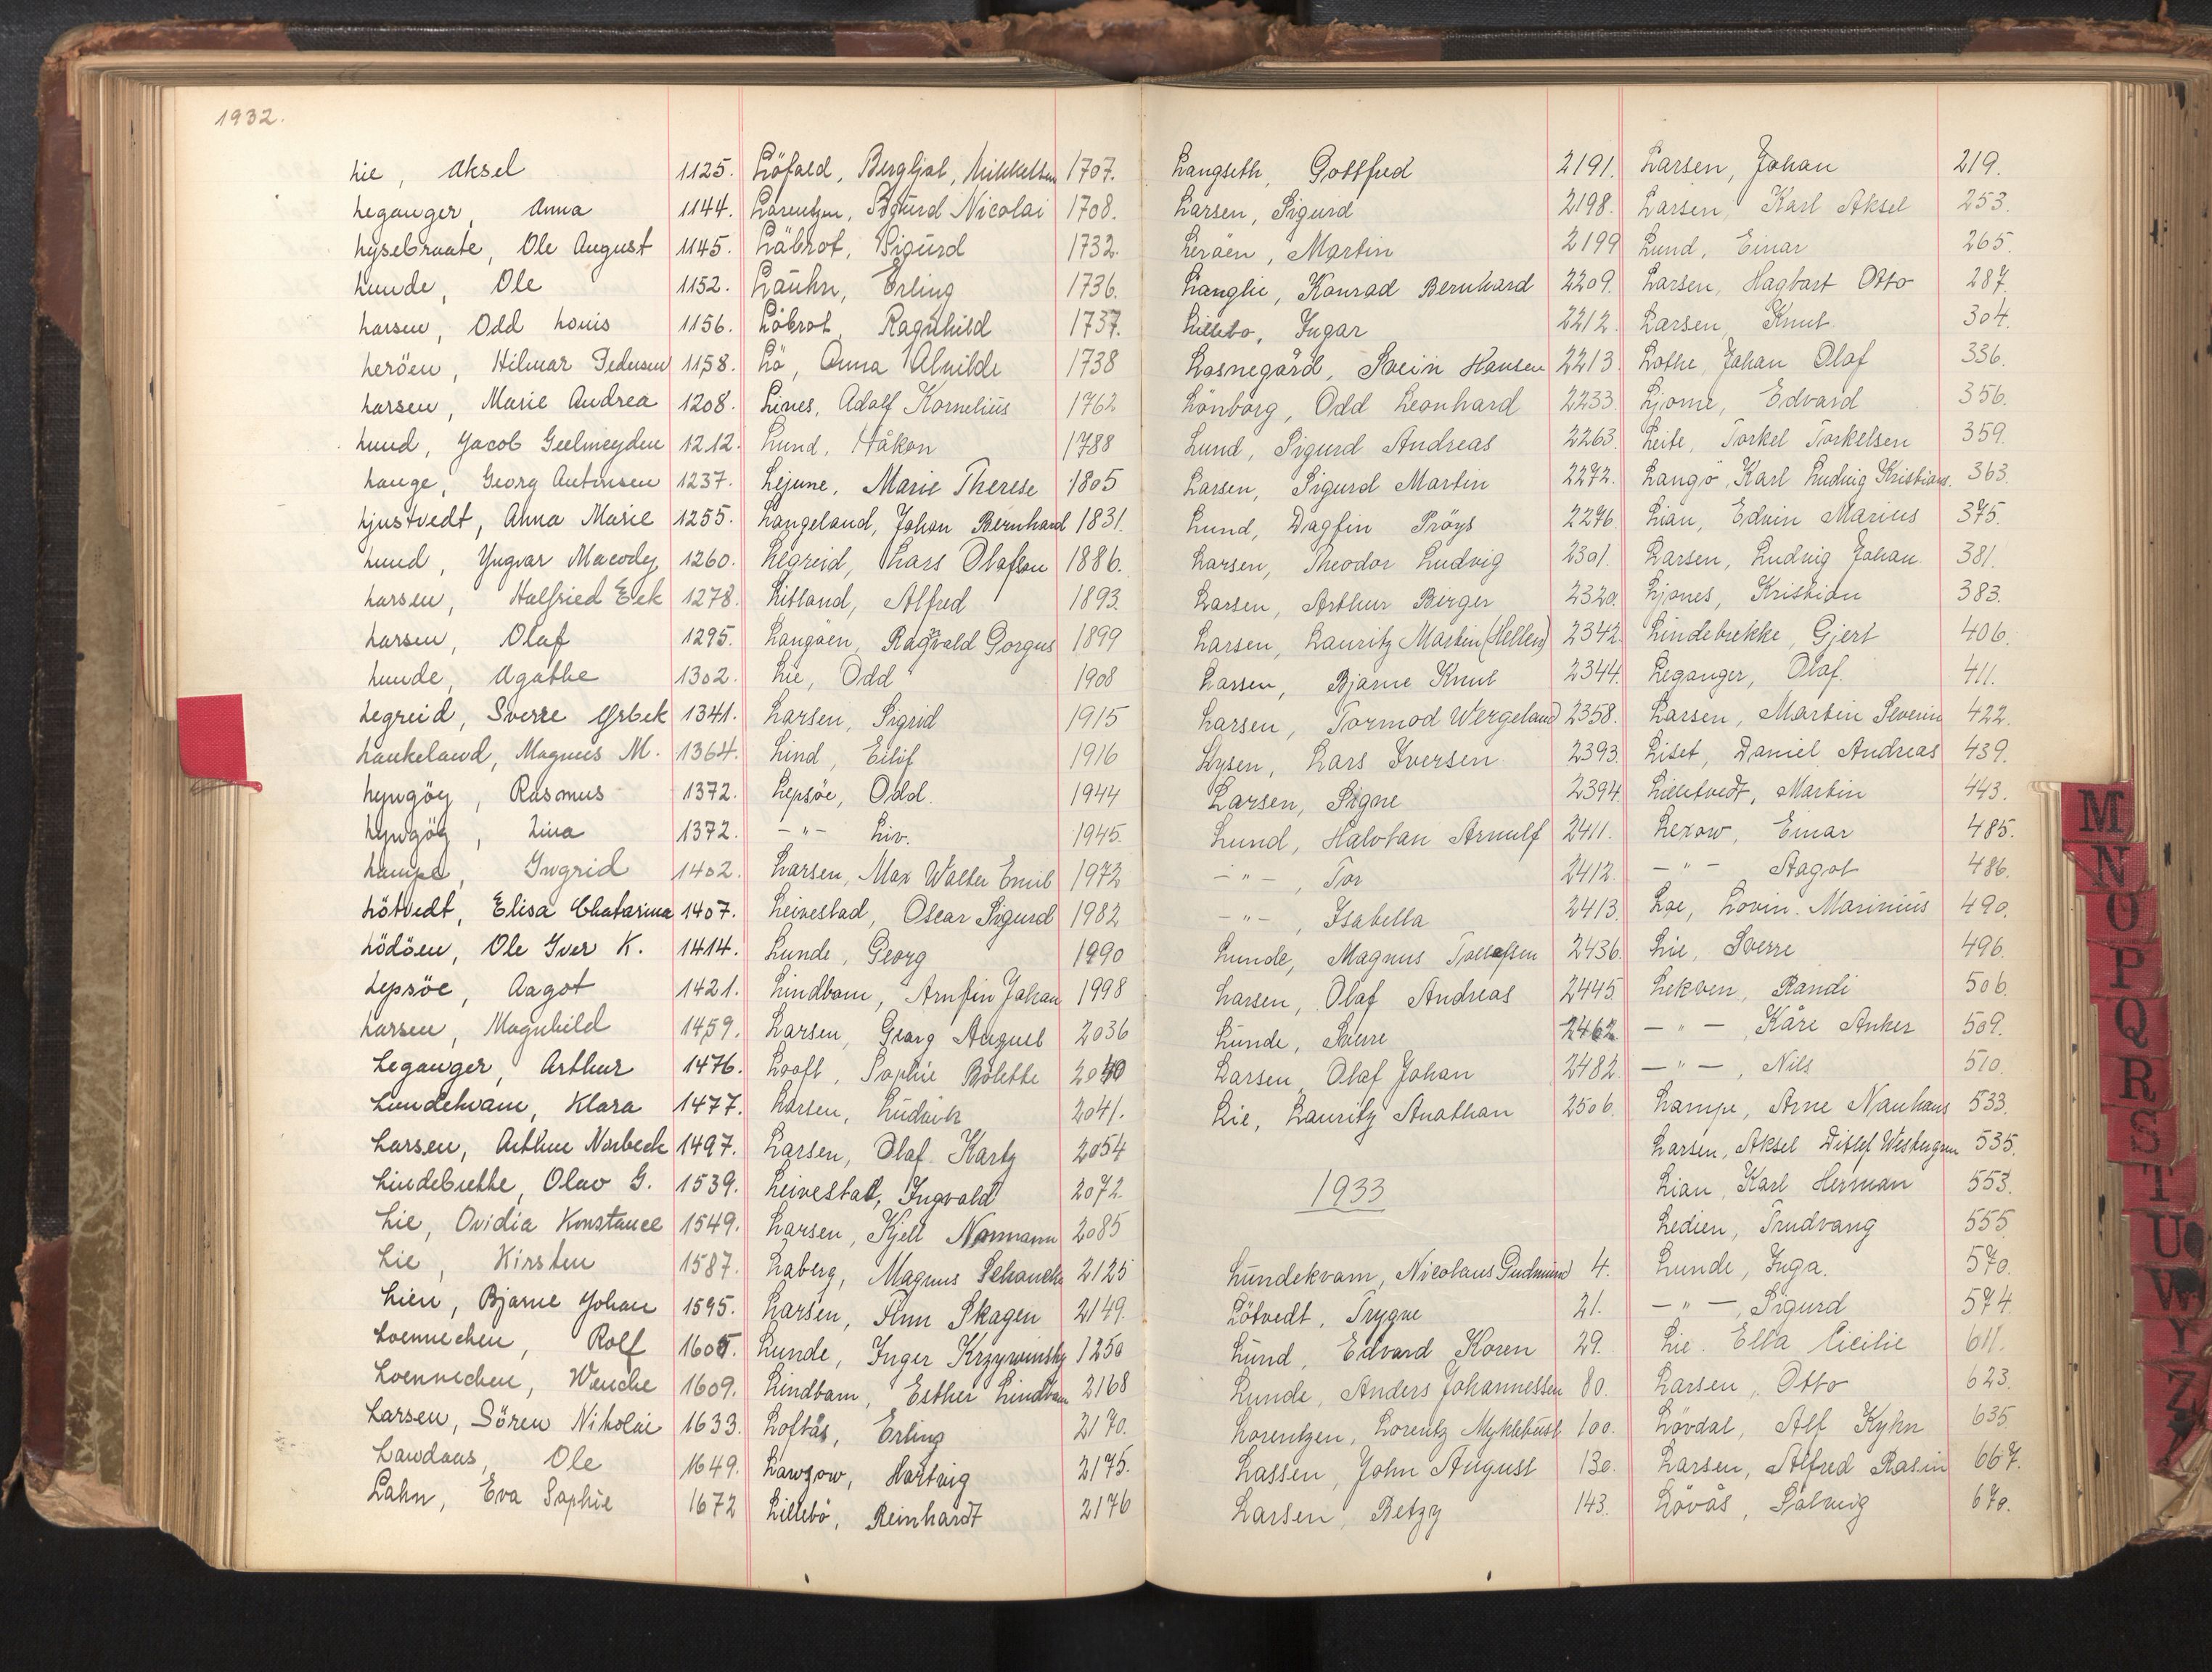 1932.
Lie, Aksel 1125.
Leganger, Anna 1144.
Lysebraate, Ole August 1145.
Lunde, Ole 1152.
Larsen, Odd Louis 1156.
Leröen, Hilmar Pedersen 1158.
Larsen, Marie Andrea 1208.
Lund, Jacob Geelmeyden 1212.
Lange, Georg Antonsen 1237.
Ljustvedt, Anna Marie 1255.
Lund, Yngvar Macody 1260.
Larsen, Halfried Eek 1278.
Larsen, Olaf 1295.
Lunde, Agathe 1302.
Legreid, Sverre Ørbek 1341.
Laukeland, Magnus M. 1364.
Lyngöy, Rasmus 1372.
Lyngöy, Lina 1372.
Lampe, Ingrid 1402.
Lötvedt, Elisa Chatarina 1407.
Lödöen, Ole Iver K. 1414.
Lepsöe, Aagot 1421.
Larsen, Magnhild 1459.
Leganger, Arthur 1476.
Lundekvam, Klara 1477.
Larsen, Arthur Norbeck 1497.
Lindebrekke, Olav G. 1539.
Lie, Ovidia Konstance 1549.
Lie, Kirsten 1587.
Lien, Bjarne Johan 1595.
Loennechen, Rolf 1605.
Loennechen, Wenche 1609.
Larsen, Sören Nikolai 1633.
Lawdaas, Ole 1649.
Lahn, Eva Sophie 1672
Löfald, Bergljot, Mikkelsen 1707.
Lorentzen, Sigurd Nicolai 1708.
Låbrot, Sigurd 1732.
Lauhn, Erling 1736.
Låbrot, Ragnhild 1737.
Lö, Anna Alvilde 1738
Lines, Adolf Kornelius 1762
Lund, Håkon 1788
Lejune, Marie Therese 1805
Langeland, Johan Bernhard 1831.
Legreid, Lars Olafson 1886.
Litland, Alfred 1893.
Langöen, Ragnvald Gorgus 1899
Lie, Odd 1908
Larsen, Sigrid 1915
Lind, Eilif 1916
Lepsöe, Odd. 1944
-"- Liv. 1945.
Larsen, Max Walter Emil 1972
Leirestad, Oscar Sigurd 1982
Lunde, Georg 1990
Lindbom, Arnfin Johan 1998
Larsen, Georg August 2036
Looft, Sophie Bolette 2040
Larsen, Ludvik 2041.
Larsen, Olaf Hartz 2054
Leirestad, Ingvald 2072.
Larsen, Kjell Normann 2085
Laberg, Magnus Schancke 2125
Larsen, Finn Skagen 2149.
Lunde, Inger Krzywinsky 1250
Lindbom, Esther Lindbom 2168
Loftås, Erling 2170.
Lawzow, Hartvig 2175.
Lillebö, Reinhardt 2176
Langseth, Gottfred 2191.
Larsen, Sigurd 2198.
Leröen, Martin 2199
Langlie, Konrad Bernhard 2209.
Lillebo, Ingar 2212.
Losnegård, Svein Hansen 2213.
Lönborg, Odd Leonhard 2233.
Lund, Sigurd Andreas 2263.
Larsen, Sigurd Martin 2272.
Lund, Dagfin Pröys 2276.
Larsen, Theodor Ludvig 2301.
Larsen, Arthur Berger 2320.
Larsen, Lauritz Martin (Hellen) 2342.
Larsen, Bjarne Knut 2344.
Larsen, Tormod Wergeland 2358.
Lysen, Lars Iversen 2393.
Larsen, Signe 2394.
Lund, Halvtan Arnulf 2411.
-"-, Tor 2412.
-"-, Isabella 2413.
Lunde, Magnus Tollefsen 2436.
Larsen, Olaf Andreas 2445.
Lunde, Sverre 2462.
Larsen, Olaf Johan 2482.
Lie, Lauritz Anathan 2506.
1933
Lundekvam, Nicolaus Gudmund 4.
Lötvedt, Trygve 21.
Lund, Edvard Koren 29.
Lunde, Anders Johannessen 80.
Lorentzen, Lorentz Myklebust 100.
Lassen, John August 130.
Larsen, Betzy 143.
Larsen, Johan 219.
Larsen, Karl Aksel 253.
Lund, Einar 265.
Larsen, Hagbart Otto 287.
Larsen, Knut 304.
Lothe, Johan Olaf 336.
Ljome, Edvard 356.
Leite, Torkel Torkelsen 359.
Langö, Karl Ludvig Kristians. 363.
Lian, Edvin Marius 375.
Larsen, Ludvig Johan 381.
Ljones, Kristian 383.
Lindebrekke, Gjert 406.
Leganger, Olaf. 411.
Larsen, Martin Severin 422.
Liset, Daniel Andreas 439.
Lilletvedt, Martin 443.
Lexow, Einar 485.
-"- Aagot 486.
Loe, Lovin. Marinius 490.
Lie, Sverre 496.
Lekven, Randi 506.
-"-, Kåre Anker 509.
-"-, Nils 510.
Lampe, Arne Nauhaus 533.
Larsen, Aksel Ditlef Westergren 535.
Lian, Karl Herman 553.
Ledien, Trudvang 555.
Lunde, Inga. 570.
-"-, Sigurd 574.
Lie. Ella Cicilie 611.
Larsen, Otto 623.
Lövdal, Alf Kyhn 635
Larsen, Alfred Rasin 667.
Lövås, Solveig 670.
M
N
O
P
Q
R
S
T
U
W
Y
Z